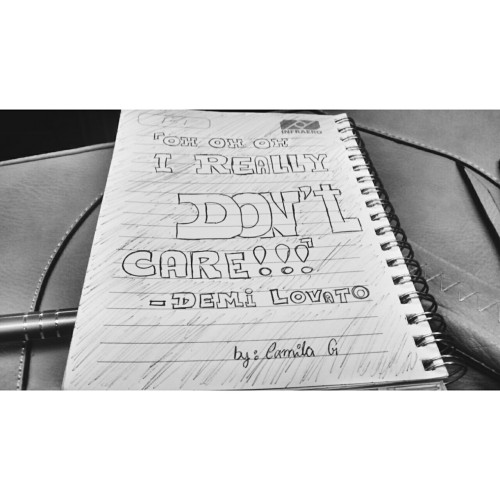 INFRAERO
"OH OH OH
I REALLY
DON'T
CARE!!!"
- DEMi LOVATO
by: Camila G